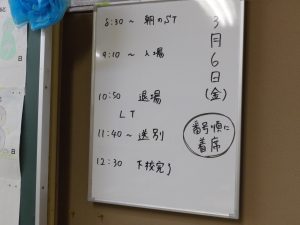 3月6日(金)
番号順に
着席
8:30～ 朝のST
9:10～ 入場
10:50 退場
LT
11:40～ 送別
12:30 下校完了